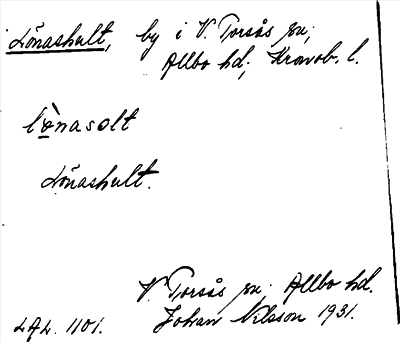 Lönashult, by i V. Torsås sn;
Allbo hd; Kronob. l.
lònasolt
Lönashult.
V. Torsås sn. Allbo hd.
LAL. 1101. Johan Nilsson 1931.